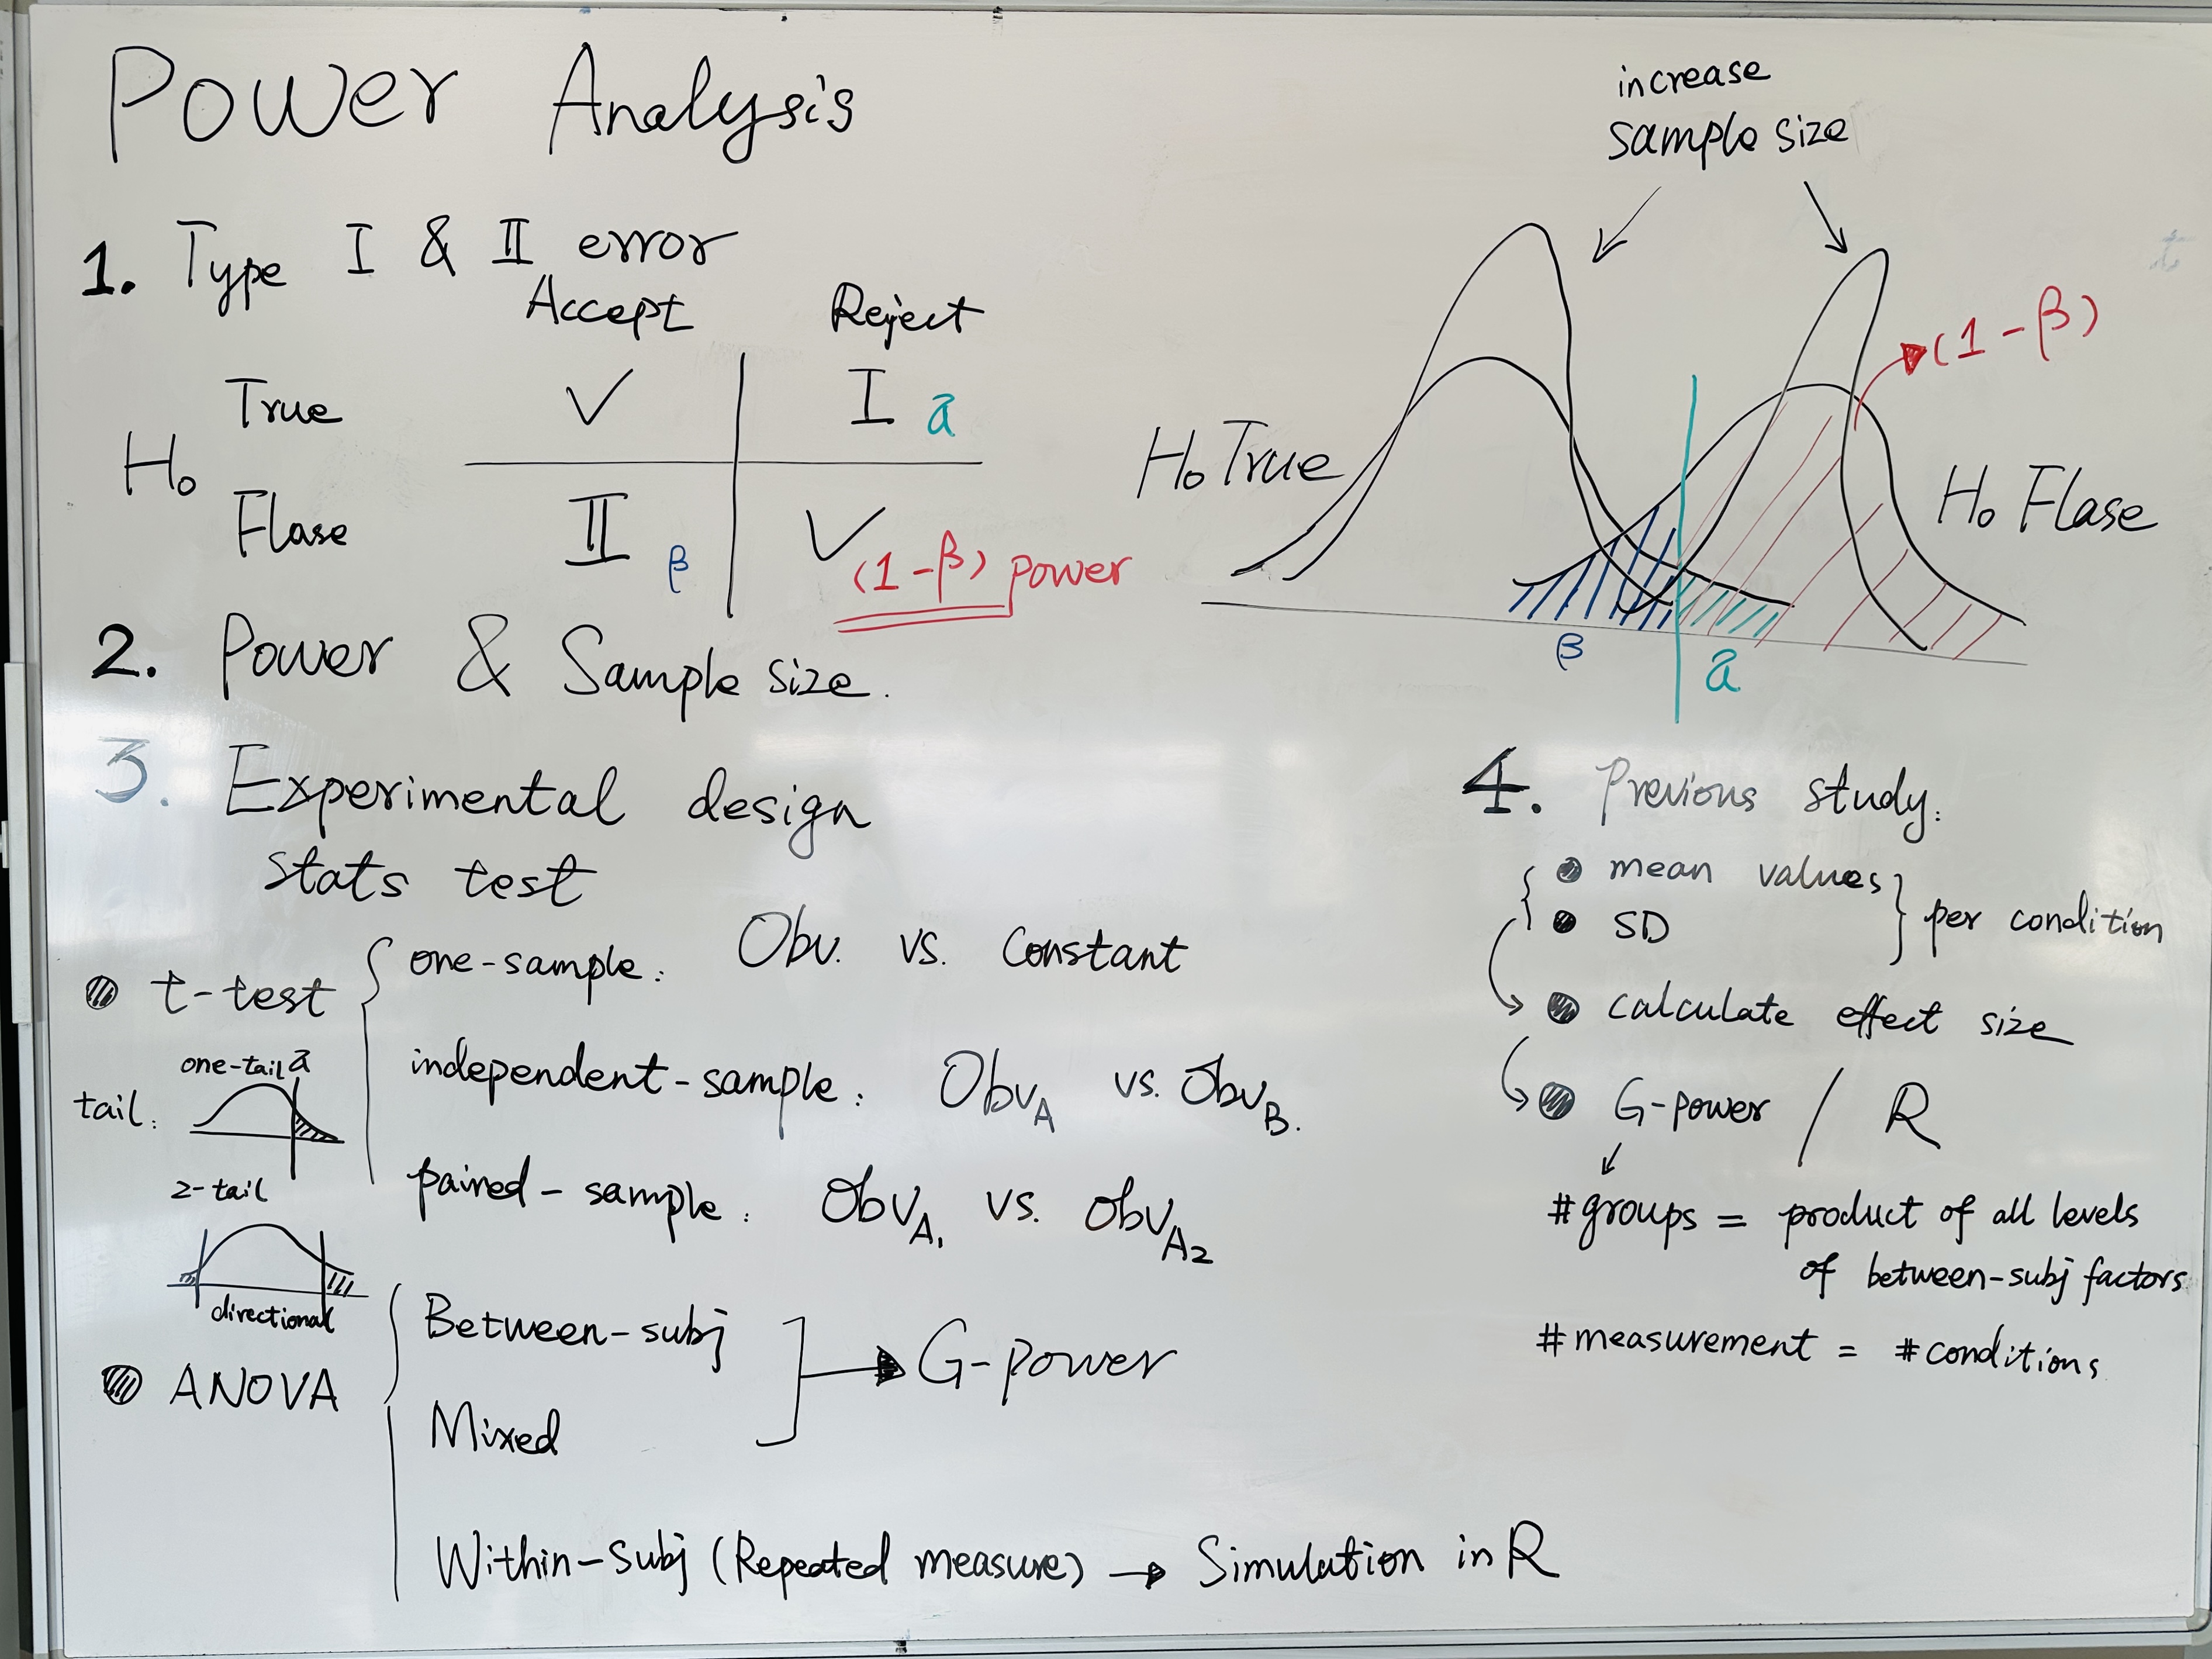 Power Analysis
1. Type I & II error
Accept Reject
True ✓ I a
H₀
Flase II β ✓ (1-β) power
increase
sample size
(1-β)
H₀ True
H₀ Flase
β
a
2. Power & Sample size.
3. Experimental design
stats test
t-test
one-sample: Obv. vs. constant
independent-sample: Obv_A vs. Obv_B.
paired-sample: Obv_A₁ vs. Obv_A₂
tail:
one-tail a
2-tail
directional
ANOVA
Between-subj
Mixed
G-power
Within-subj (Repeated measure) → Simulation in R
4. Previous study:
mean values
SD
per condition
calculate effect size
G-power / R
#groups = product of all levels
of between-subj factors
#measurement = #conditions